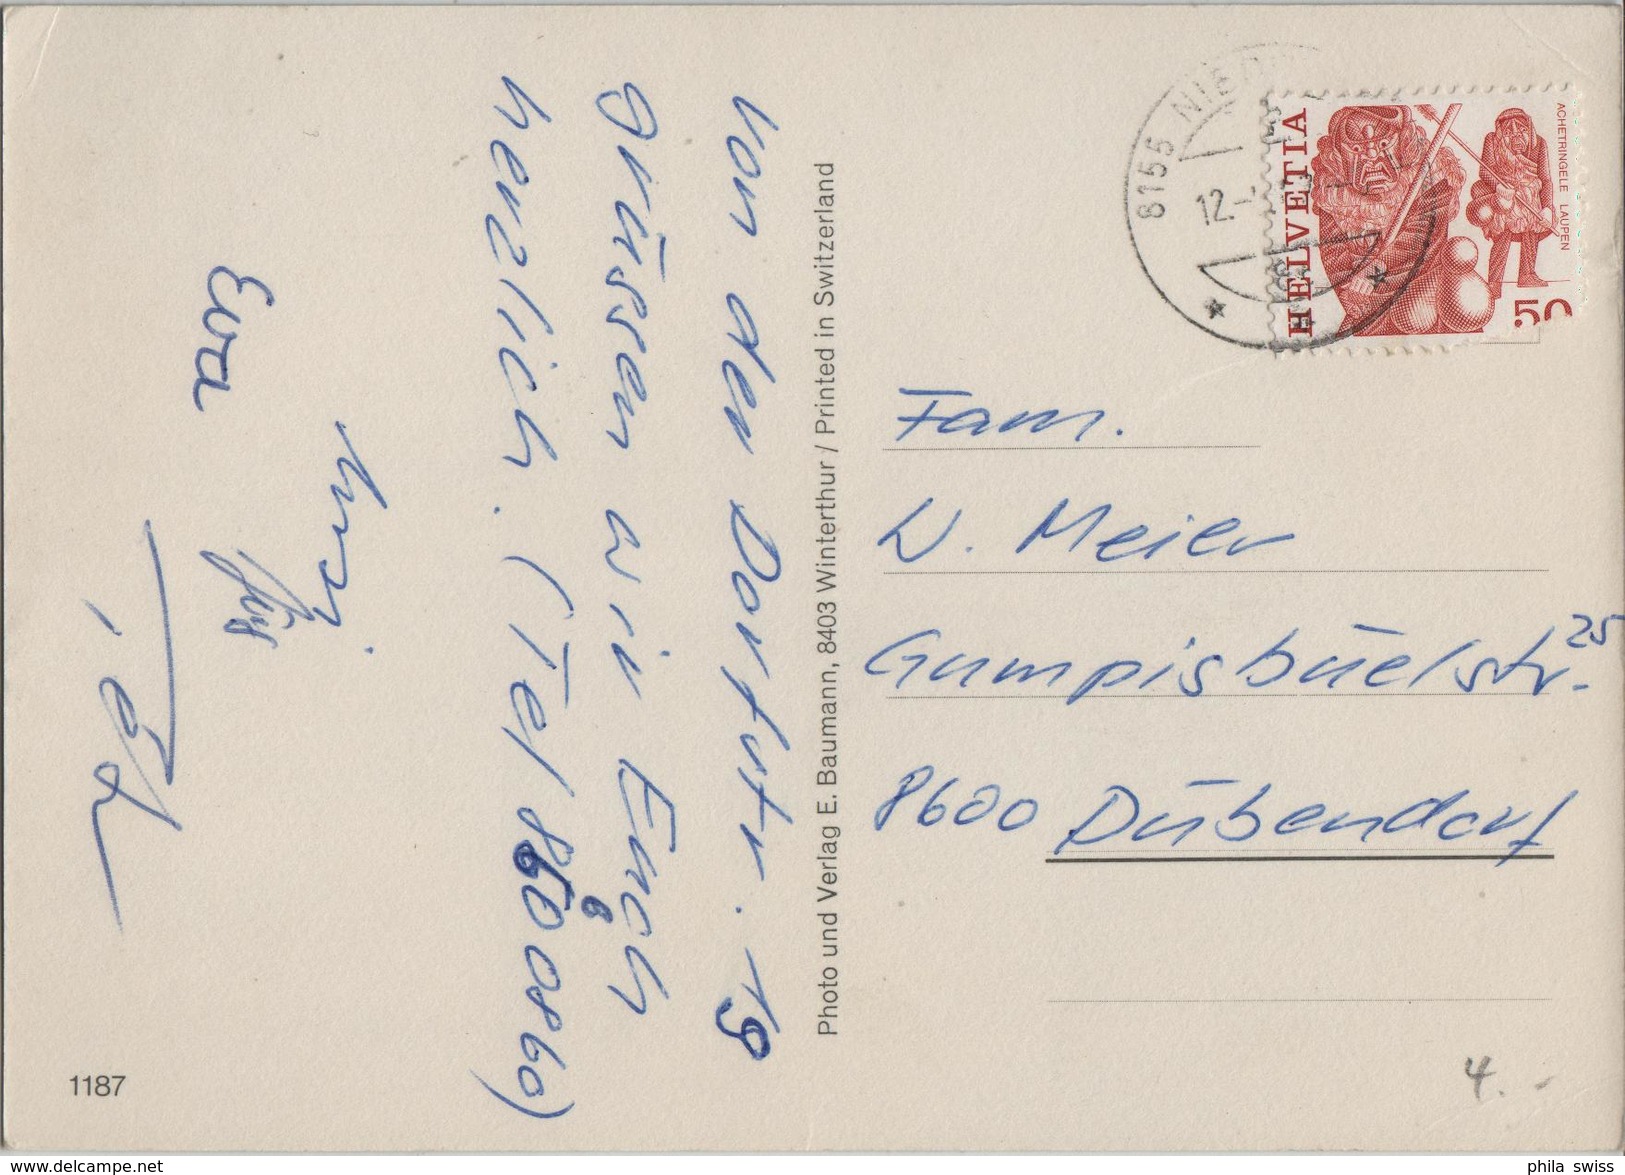 von der Dorfstr. 19
grüssen wir Euch
herzlich. (Tel 850 08 60)
6
Ursi
Eva
Photo und Verlag E. Baumann, 8403 Winterthur / Printed in Switzerland
1187
8155 NIE
12.-
HELVETIA
ACHETRINGELE LAUPEN
50
Fam.
W. Meier
Gumpisbüelstr. 25
8600 Dübendorf
4.-
phila swiss
www.delcampe.net